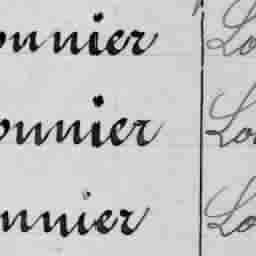 onnier Lo
onnier Lou
nnier Lo